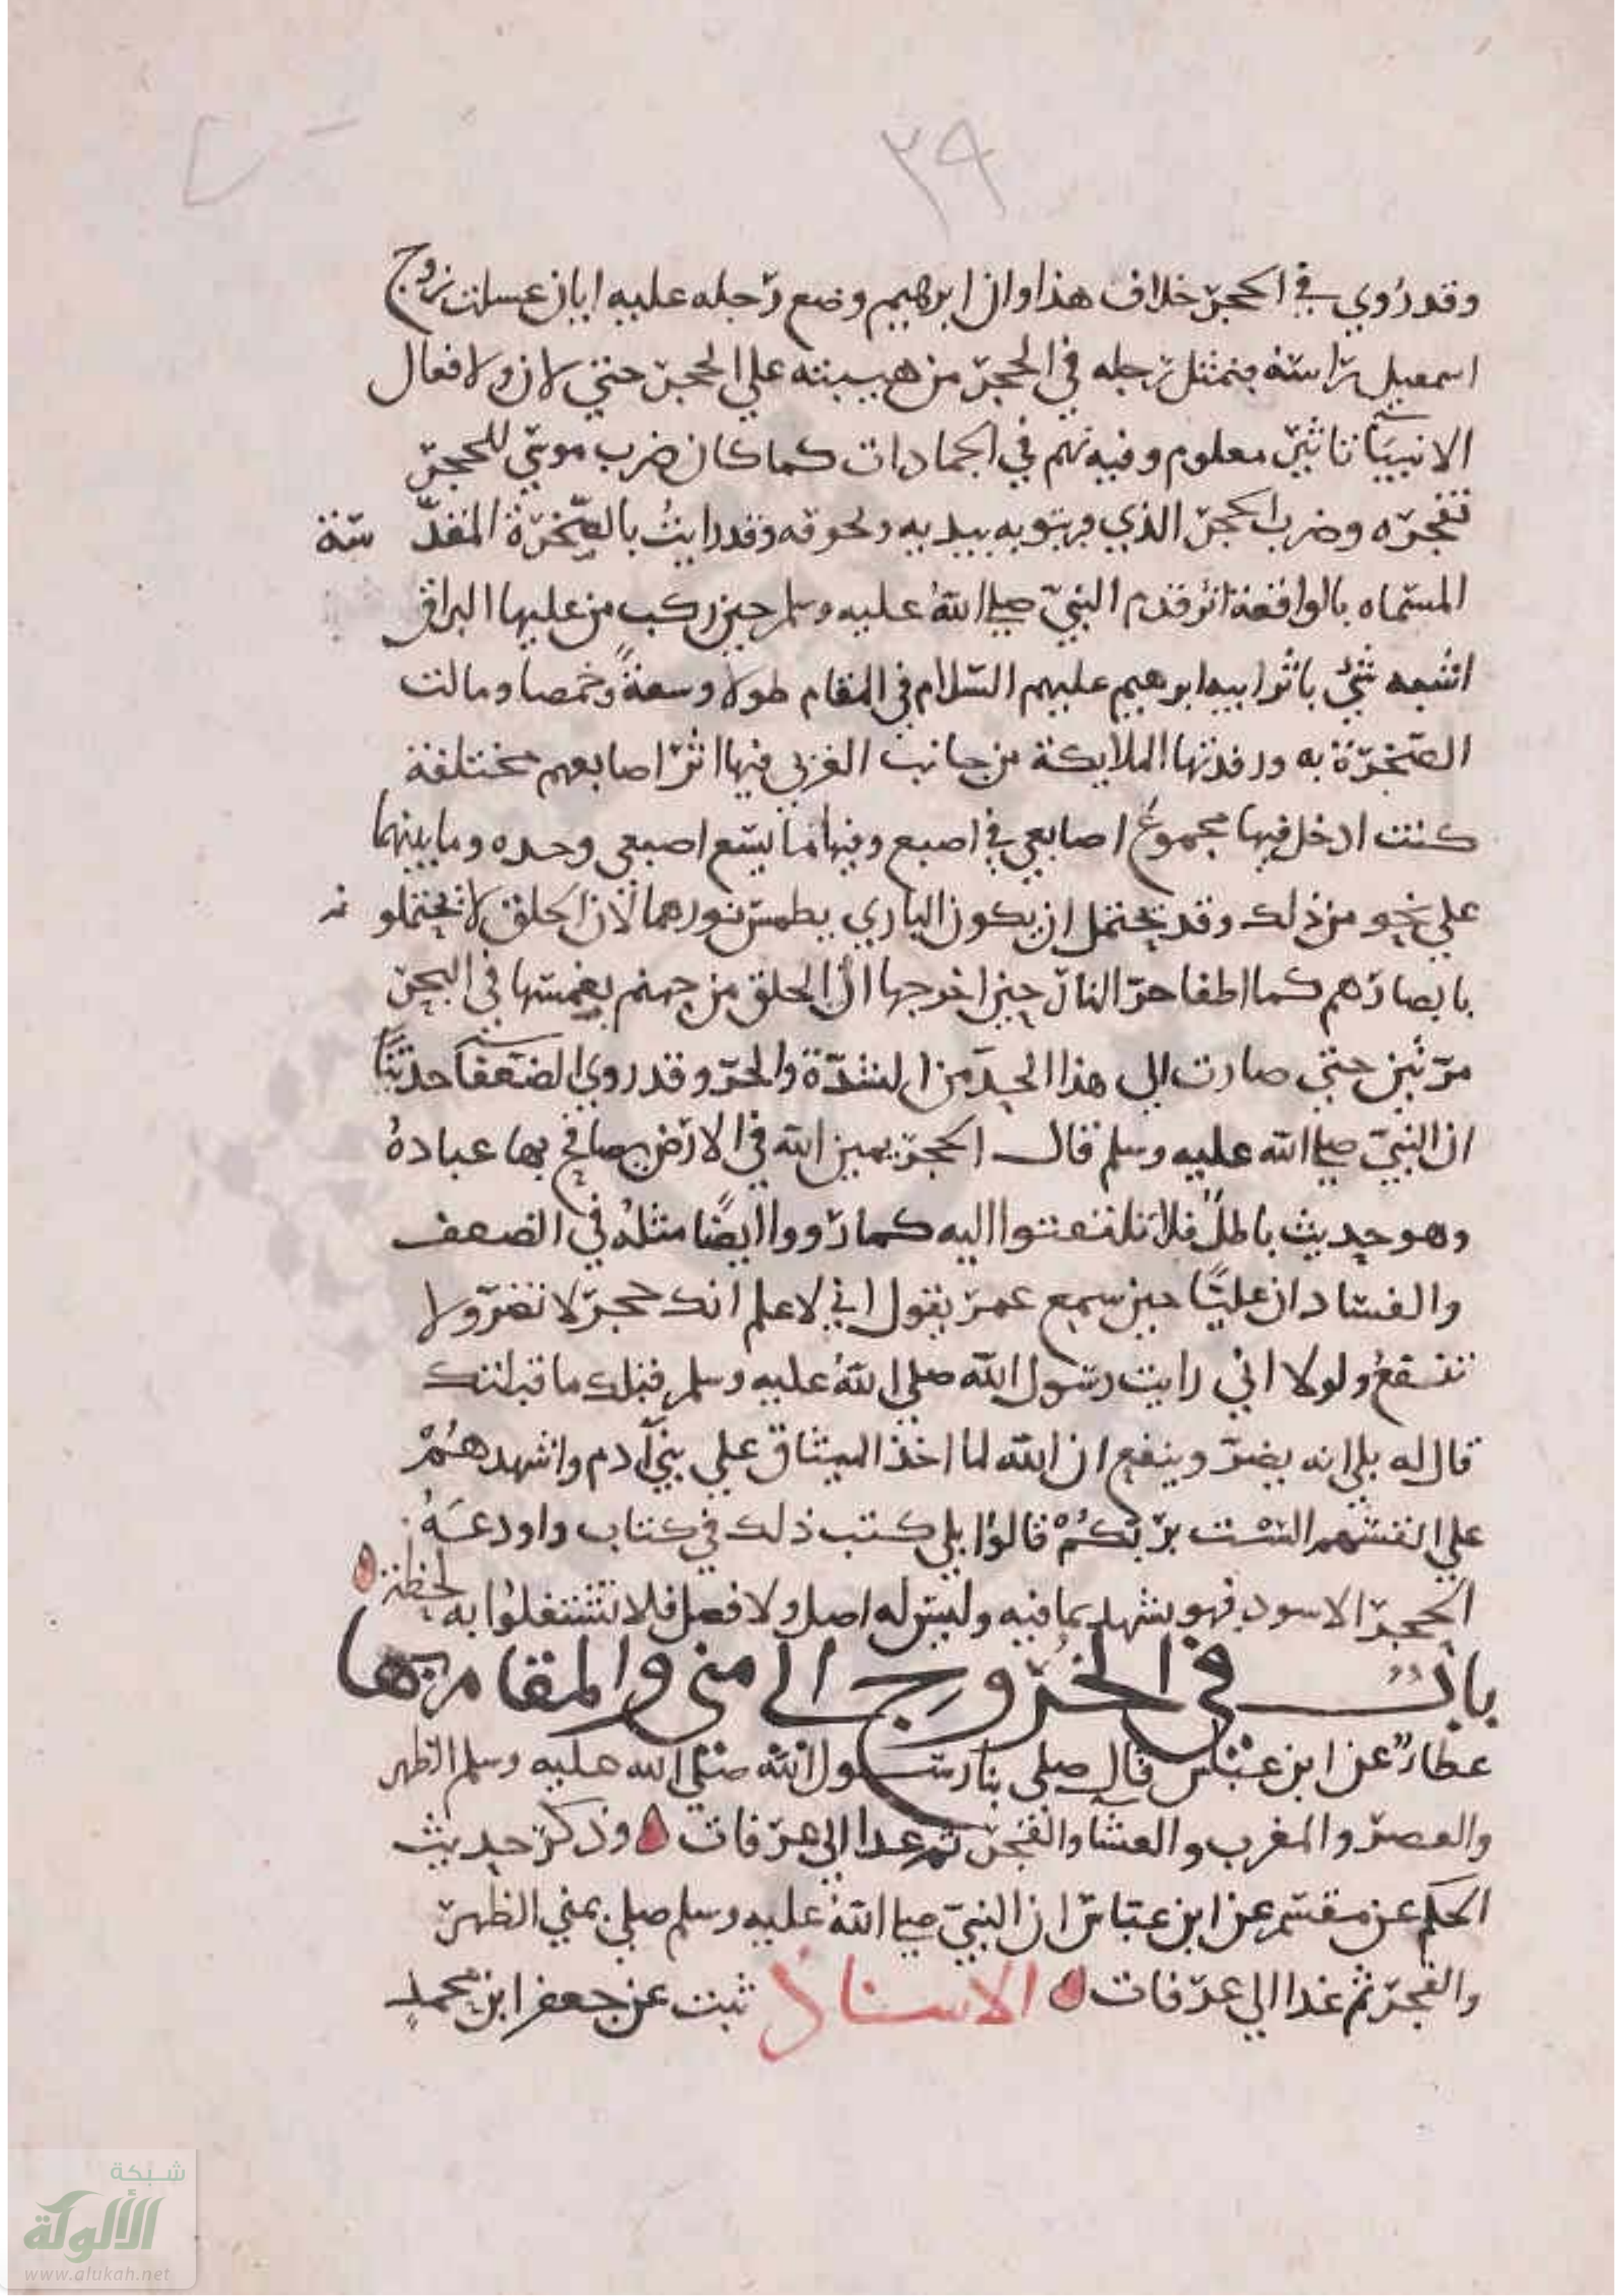 ٣٩
وقد روي في الحجر خلاف هذا وان ابرهيم وضع رجله عليه ابان غسلت زوج
اسمعيل راسه فتمثل رجله في الحجر من هيبته علي الحجر حتي لان ولافعال
الانبيآ تاثير معلوم وفيه نهم في الجمادات كما كان ضرب موسي للحجر
تفجره وضرب الحجر الذي فر بثوبه بيديه ولحوقه وقد رايت بالصخرة المقد سة
المسماه بالواقعة اثر قدم النبي صلي الله عليه وسلم حين ركب من عليها البراق
اشبه شيئ باثر ابيه ابرهيم عليهم السلام في المقام طولا وسعة وخمصا ومالت
الصخرة به ورفدتها الملايكة من جانب الغربي فيها اثر اصابعهم مختلفة
كنت ادخل فيها مجموع اصابعي في اصبع وفيها ما يسع اصبعي وحده وما بينهما
علي نحو من ذلك وقد يحتمل ان يكون الباري يطمس نورهما لان الخلق لا يحتملو نه
بابصارهم كما اطفا حر النار حين اخرجها الي الخلق من جهنم بغمسها في البحر
مرتين حتي صارت الي هذا الحد من الشدة والحر وقد روي الضعفآ حديثا
ان النبي صلي الله عليه وسلم قال الحجر يمين الله في الارض يصافح بها عباده
وهو حديث باطل فلا تلتفتوا اليه كما رووا ايضا مثله في الضعف
والفساد ان عليا حين سمع عمر يقول اني لاعلم انك حجر لا تضر ولا
تنفع ولولا اني رايت رسول الله صلي الله عليه وسلم قبلك ما قبلتك
قال له بلي انه يضر وينفع ان الله لما اخذ الميثاق علي بني آدم واشهدهم
علي انفسهم الست بربكم قالوا بلي كتب ذلك في كتاب واودعه
الحجر الاسود فهو يشهد بما فيه وليس له اصل ولا فصل فلا تشتغلوا به لحظة
باب في الخروج الي مني والمقام بها
عطا عن ابن عباس قال صلي بنا رسول الله صلي الله عليه وسلم الظهر
والعصر والمغرب والعشآ والفجر ثم غدا الي عرفات وذكر حديث
الحكم عن مقسم عن ابن عباس ان النبي صلي الله عليه وسلم صلي بمني الظهر
والفجر ثم غدا الي عرفات الاسناد ثبت عن جعفر ابن محمد
شبكة
الألوكة
www.alukah.net